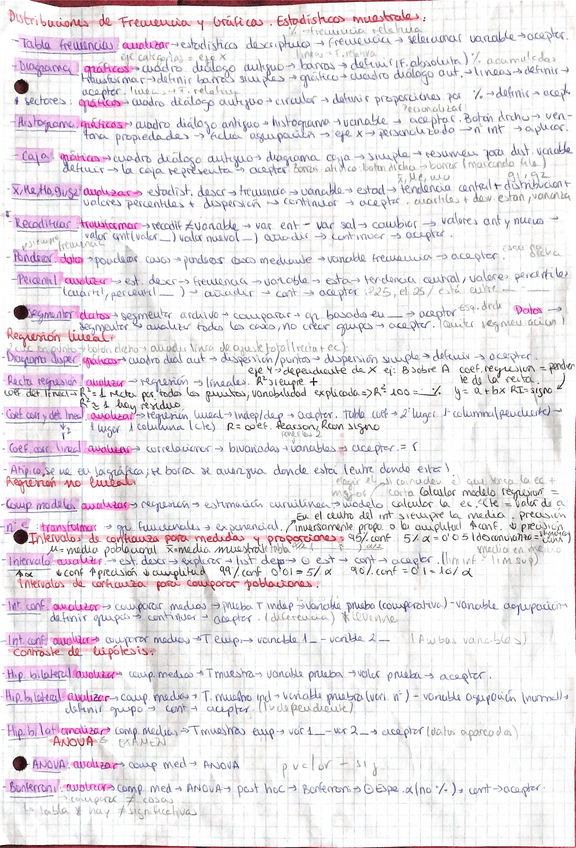 Distribuciones de Frecuencia y Gráficas. Estadísticos muestrales.
% → frecuencia relativa
- Tabla frecuencias analizar → estadística descriptiva → frecuencia → seleccionar variable → aceptar.
- Diagrama gráficos → cuadro diálogo antiguo → barras → definir (f. absoluta) % acumuladas
transformar → definir barras simples → gráfico → cuadro diálogo ant. → líneas → definir →
aceptar. líneas → f. relativa
sectores: gráficos → cuadro diálogo antiguo → circular → definir proporciones por % → definir → acept
- Histograma gráficos → cuadro diálogo antiguo → histograma → variable → aceptar. Botón drcho → ven-
tana propiedades → ficha agrupación → eje x → personalizado → nº int → aplicar.
- Caja gráficos → cuadro diálogo antiguo → diagrama caja → simple → resumen para dist. variable
definir → la caja representa → aceptar
X, Me, Mo, g1, g2 analizar → estadist. descr → frecuencia → variable → estad → tendencia central + distribución +
valores percentiles + dispersión → continuar → aceptar. cuartiles + desv. estan, varianza
Recodificar transformar → recodif ≠ variable → var ent - var sal → cambiar → valores ant y nuevo →
valor ant (valor _) valor nuevo (_) añadir → continuar → aceptar.
- Ponderar datos → ponderar casos → ponderar casos mediante → variable frecuencia → aceptar.
- Percentil analizar → est. descr → frecuencia → variable → esta → tendencia central, valores percentiles
(cuartil, percentil _) → añadir → cont → aceptar
Segmentar datos → segmentar archivo → comparar gr. basado en _ → aceptar Esq. drch Datos →
segmentar → analizar todos los casos, no crear grupos → aceptar. (quitar segmentación)
Regresión lineal:
- Diagrama disper gráficos → cuadro dial ant → dispersión/puntos → dispersión simple → definir → aceptar.
eje Y → dependiente de X ej: B sobre A coef. regresion = pendien-
- Recta regresión analizar → regresión → lineales. R² siempre + te de la recta.
coef. det lineal → R² = 1 recta por todos los puntos, variabilidad explicada → R² · 100 = _% y = a + bx RI = signo
R² ≈ 1 hay residuo.
- Coef corr, det lineal analizar → regresión lineal → indep/dep → aceptar. Tabla coef → 2º lugar 1 columna (pendiente) →
1 lugar 1 columna (cte) R = coef. Pearson, R con signo
- Coef. corr. lineal analizar → correlaciones → bivariables → aceptar. = r
- Atípico, se ve en la gráfica, se borra se averigua donde está (entre donde está)
Regresión no lineal:
- Comp. modelos analizar → regresión → estimación curvilínea → modelo calcular la ec. cte = valor de a
carta calcular modelo regresion =
- nº e transformar → gr. funcionales → exponencial. En el centro del int siempre la media, precisión
inversamente propo. a la amplitud ↑ conf. ↓ precisión
Intervalos de confianza para medidas y proporciones: 95% conf. 5% α = 0'05
μ = media poblacional x̄ = media muestral
- Intervalo analizar → est. desc → explorar → list dep → ⊙ est → cont → aceptar. (lim inf - lim sup)
↑α ↓conf ↑precisión ↓amplitud 99% conf 0'01 = 5% α 90% conf = 0'1 = 10% α
Intervalos de confianza para comparar poblaciones:
- Int conf. analizar → comparar medias → prueba T indep → variable prueba (comparativa) - variable agrupación
definir grupos → continuar → aceptar. (diferencia) ≠ Levenne
- Int conf. analizar → comparar medias → T emp. → variable 1 _ - variable 2 _ → (Ambas variables)
Contraste de hipótesis:
- Hip. bilateral analizar → comp. medias → T muestra → variable prueba → valor prueba → aceptar.
- Hip. bilateral analizar → comp. medias → T. muestra ind → variable prueba (vari. nº) - variable agrupación (normal) →
definir grupo → cont → aceptar. (Independiente)
- Hip. bilat analizar → comp medias → T muestras emp → var 1 _ - var 2 _ → aceptar (datos apareados)
ANOVA EXAMEN
ANOVA analizar → comp med → ANOVA p valor - sig
- Bonferroni analizar → comp. med → ANOVA → post hoc → Bonferroni → ⊙ Espe. α (no %), cont → aceptar.
comparar ≠ cosas
→ tabla * hay ≠ significativas